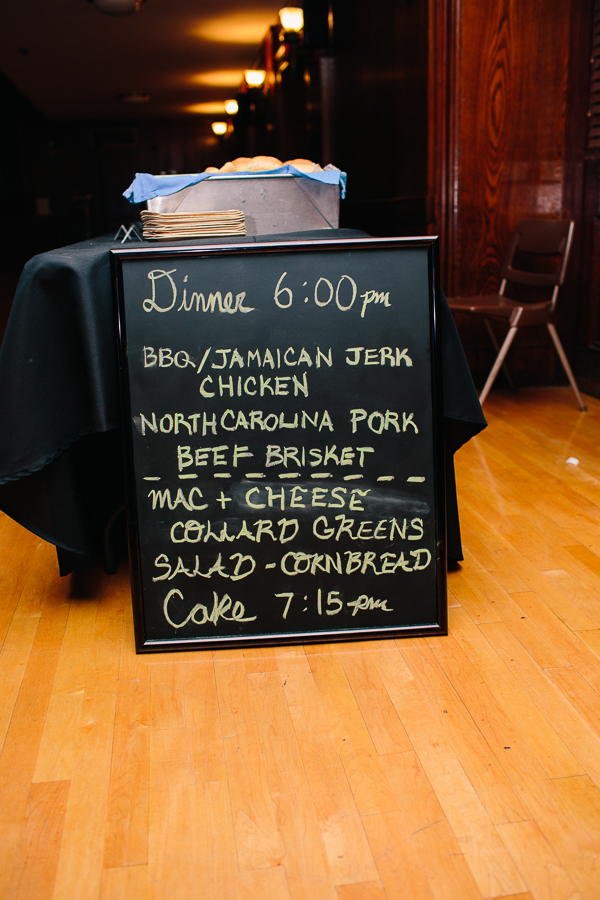 Dinner 6:00 pm
BBQ/JAMAICAN JERK
CHICKEN
NORTH CAROLINA PORK
BEEF BRISKET
MAC + CHEESE
COLLARD GREENS
SALAD - CORNBREAD
Cake 7:15-pm